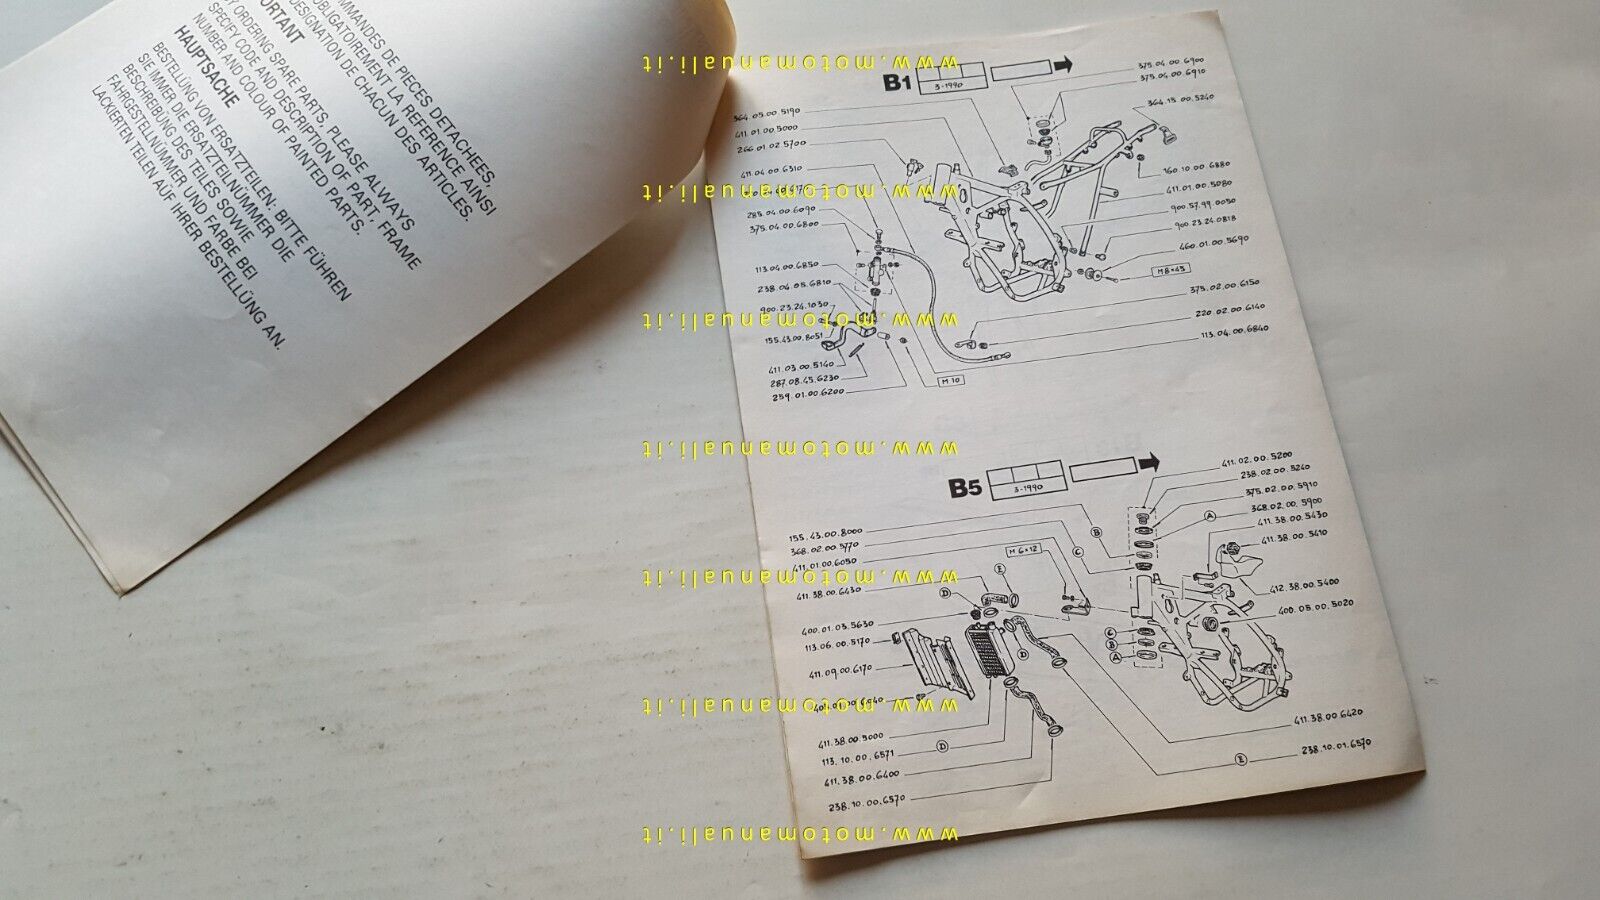 MMANDES DE PIECES DETACHEES,
OBLIGATOIREMENT LA REFERENCE AINSI
DESIGNATION DE CHACUN DES ARTICLES.
PORTANT
ORDERING SPARE PARTS, PLEASE ALWAYS
SPECIFY CODE AND DESCRIPTION OF PART, FRAME
NUMBER AND COLOUR OF PAINTED PARTS.
HAUPTSACHE
BESTELLÜNG VON ERSATZTEILEN: BITTE FÜHREN
SIE IMMER DIE ERSATZTEILNÜMMER DIE
BESCHREIBÜNG DES TEILES SOWIE
FAHRGESTELLNÜMMER UND FARBE BEI
LACKIERTEN TEILEN AUF IHRER BESTELLÜNG AN.
B1
3-1990
375.04.00.6900
375.04.00.6910
364.15.00.5240
364.05.00.5190
411.01.00.5000
266.01.02.5700
411.04.00.6310
285.04.00.6090
375.04.00.6800
113.04.00.6850
238.04.05.6810
900.23.24.1030
155.43.00.8051
411.03.00.5140
287.08.45.6230
259.01.00.6200
M10
160.10.00.6880
411.01.00.5080
900.57.99.0050
900.23.24.0818
460.01.00.5690
M8×45
375.02.00.6150
220.02.00.6140
113.04.00.6840
B5
3-1990
411.02.00.5200
238.02.00.5240
375.02.00.5910
A
368.02.00.5900
411.38.00.5430
411.38.00.5410
412.38.00.5400
400.05.00.5020
155.43.00.8000
B
368.02.00.5770
C
M6×12
411.01.00.6050
E
411.38.00.6430
D
400.01.03.5630
113.06.00.5170
D
C
B
A
411.09.00.6170
411.38.00.5000
113.10.00.6571
D
411.38.00.6400
238.10.00.6570
411.38.00.6420
238.10.01.6570
E
www.motomanuali.it
www.motomanuali.it
www.motomanuali.it
www.motomanuali.it
www.motomanuali.it
www.motomanuali.it
www.motomanuali.it